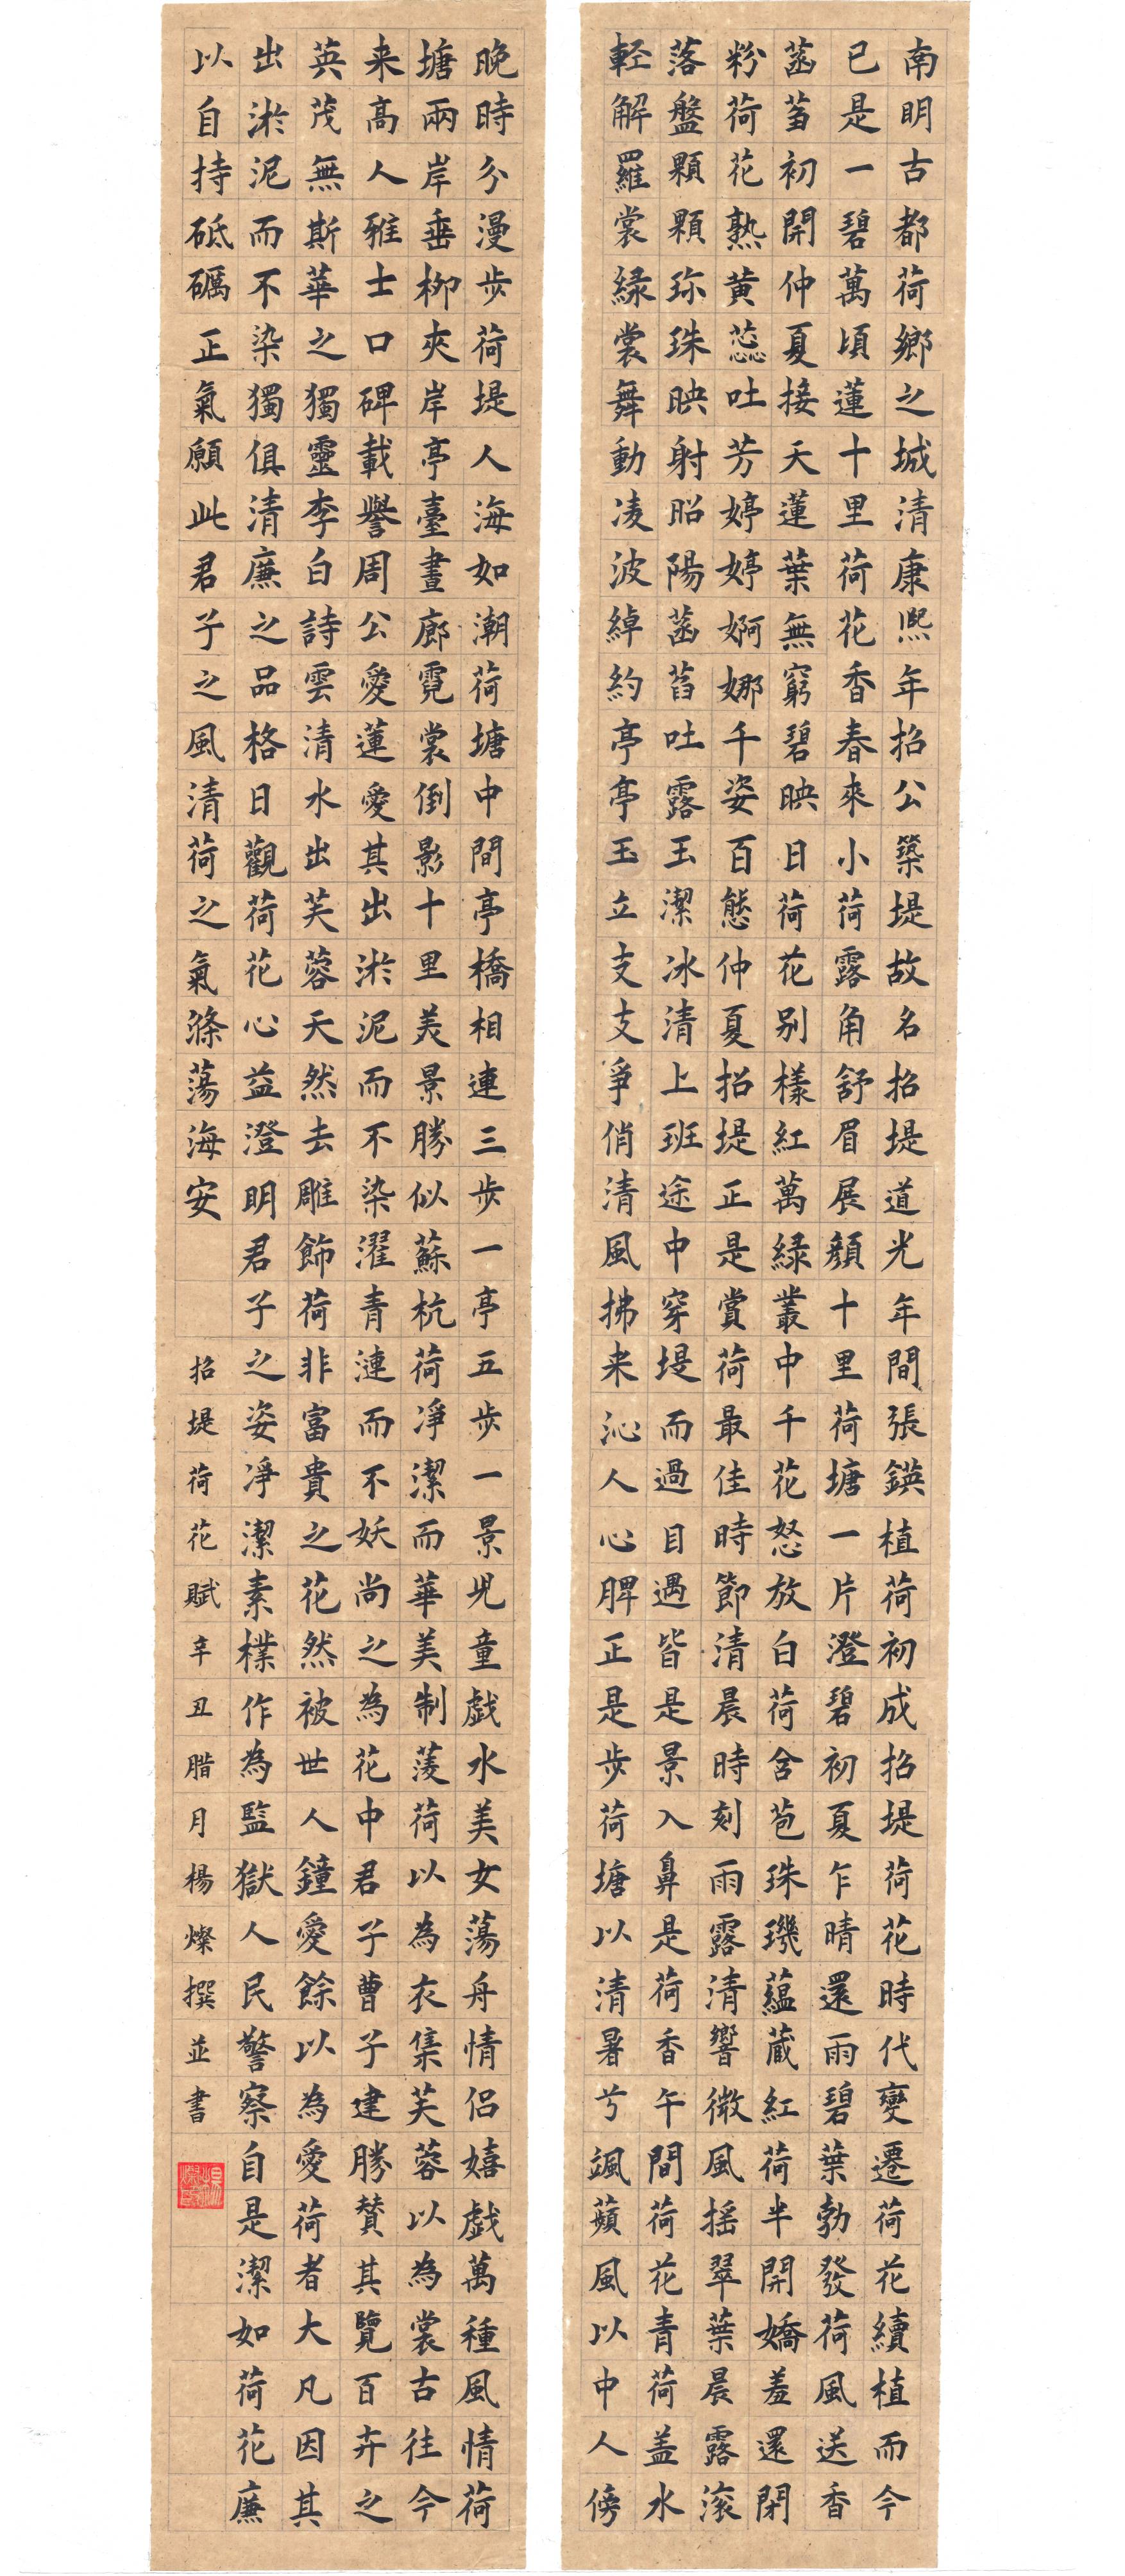 南明古都荷鄉之城清康熙年招公築堤故名招堤道光年間張鍈植荷初成招堤荷花時代變遷荷花續植而今
已是一碧萬頃蓮十里荷花香春來小荷露角舒眉展顏十里荷塘一片澄碧初夏乍晴還雨碧葉勃發荷風送香
菡萏初開仲夏接天蓮葉無窮碧映日荷花別樣紅萬緑叢中千花怒放白荷含苞珠璣藴蔵紅荷半開嬌羞還閉
粉荷花熟黄蕊吐芳婷婷婀娜千姿百態仲夏招堤正是賞荷最佳時節清晨時刻雨露清響微風摇翠葉晨露滚
落盤顆顆珎珠映射昭陽菡萏吐露玉潔冰清上班途中穿堤而過目遇皆是景入鼻是荷香午間荷花青荷盖水
輕解羅裳緑裳舞動凌波綽約亭亭玉立支支爭俏清風拂来沁人心脾正是步荷塘以清暑兮颯蘋風以中人傍
晚時分漫步荷堤人海如潮荷塘中間亭橋相連三步一亭五步一景児童戲水美女蕩舟情侣嬉戲萬種風情荷
塘兩岸垂柳夾岸亭臺畫廊霓裳倒影十里美景勝似蘇杭荷凈潔而華美制菱荷以為衣集芙蓉以為裳古往今
来高人雅士口碑載譽周公愛蓮愛其出淤泥而不染濯青漣而不妖尚之為花中君子曹子建勝賛其覽百卉之
英茂無斯華之獨靈李白詩雲清水出芙蓉天然去雕飾荷非富貴之花然被世人鐘愛餘以為愛荷者大凡因其
出淤泥而不染獨俱清廉之品格日觀荷花心益澄明君子之姿凈潔素樸作為監獄人民警察自是潔如荷花廉
以自持砥礪正氣願此君子之風清荷之氣滌蕩海安
招堤荷花賦辛丑腊月楊燦撰並書